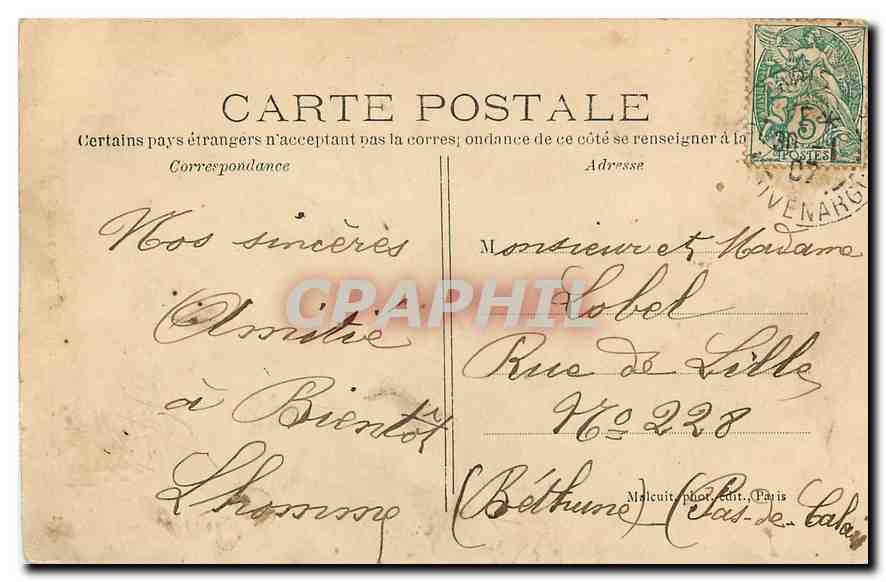 CARTE POSTALE
Certains pays étrangers n'acceptant pas la corres; ondance de ce côté se renseigner à la
Correspondance
Adresse
Nos sincères
Amitié
à Bientôt
Lhomme
Monsieur et Madame
Lobel
Rue de Lille
No 228
(Béthune) (Pas-de-Calais
Malcuit, phot. édit., Paris
CPAPHIL
5
POSTES
5 *
30 - 1
07